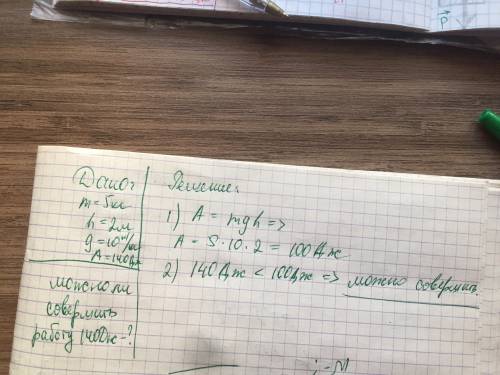 P
Дано:
m=5кг
h=2м
g=10м/с²
A=140Дж
можно ли
совершить
работу 140Дж-?
Решение:
1) A = mgh =>
A = 5·10·2 = 100Дж
2) 140Дж < 100Дж => можно совершить.